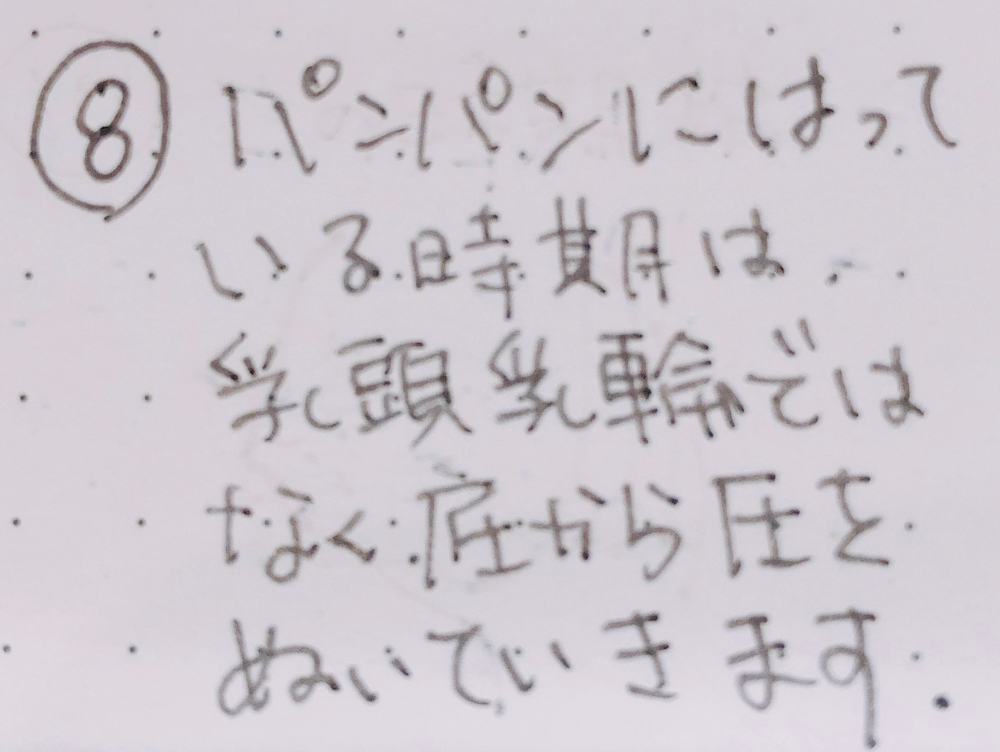 ⑧ パンパンにはって
いる時期は、
乳頭乳輪では
なく底から圧を
ぬいていきます.